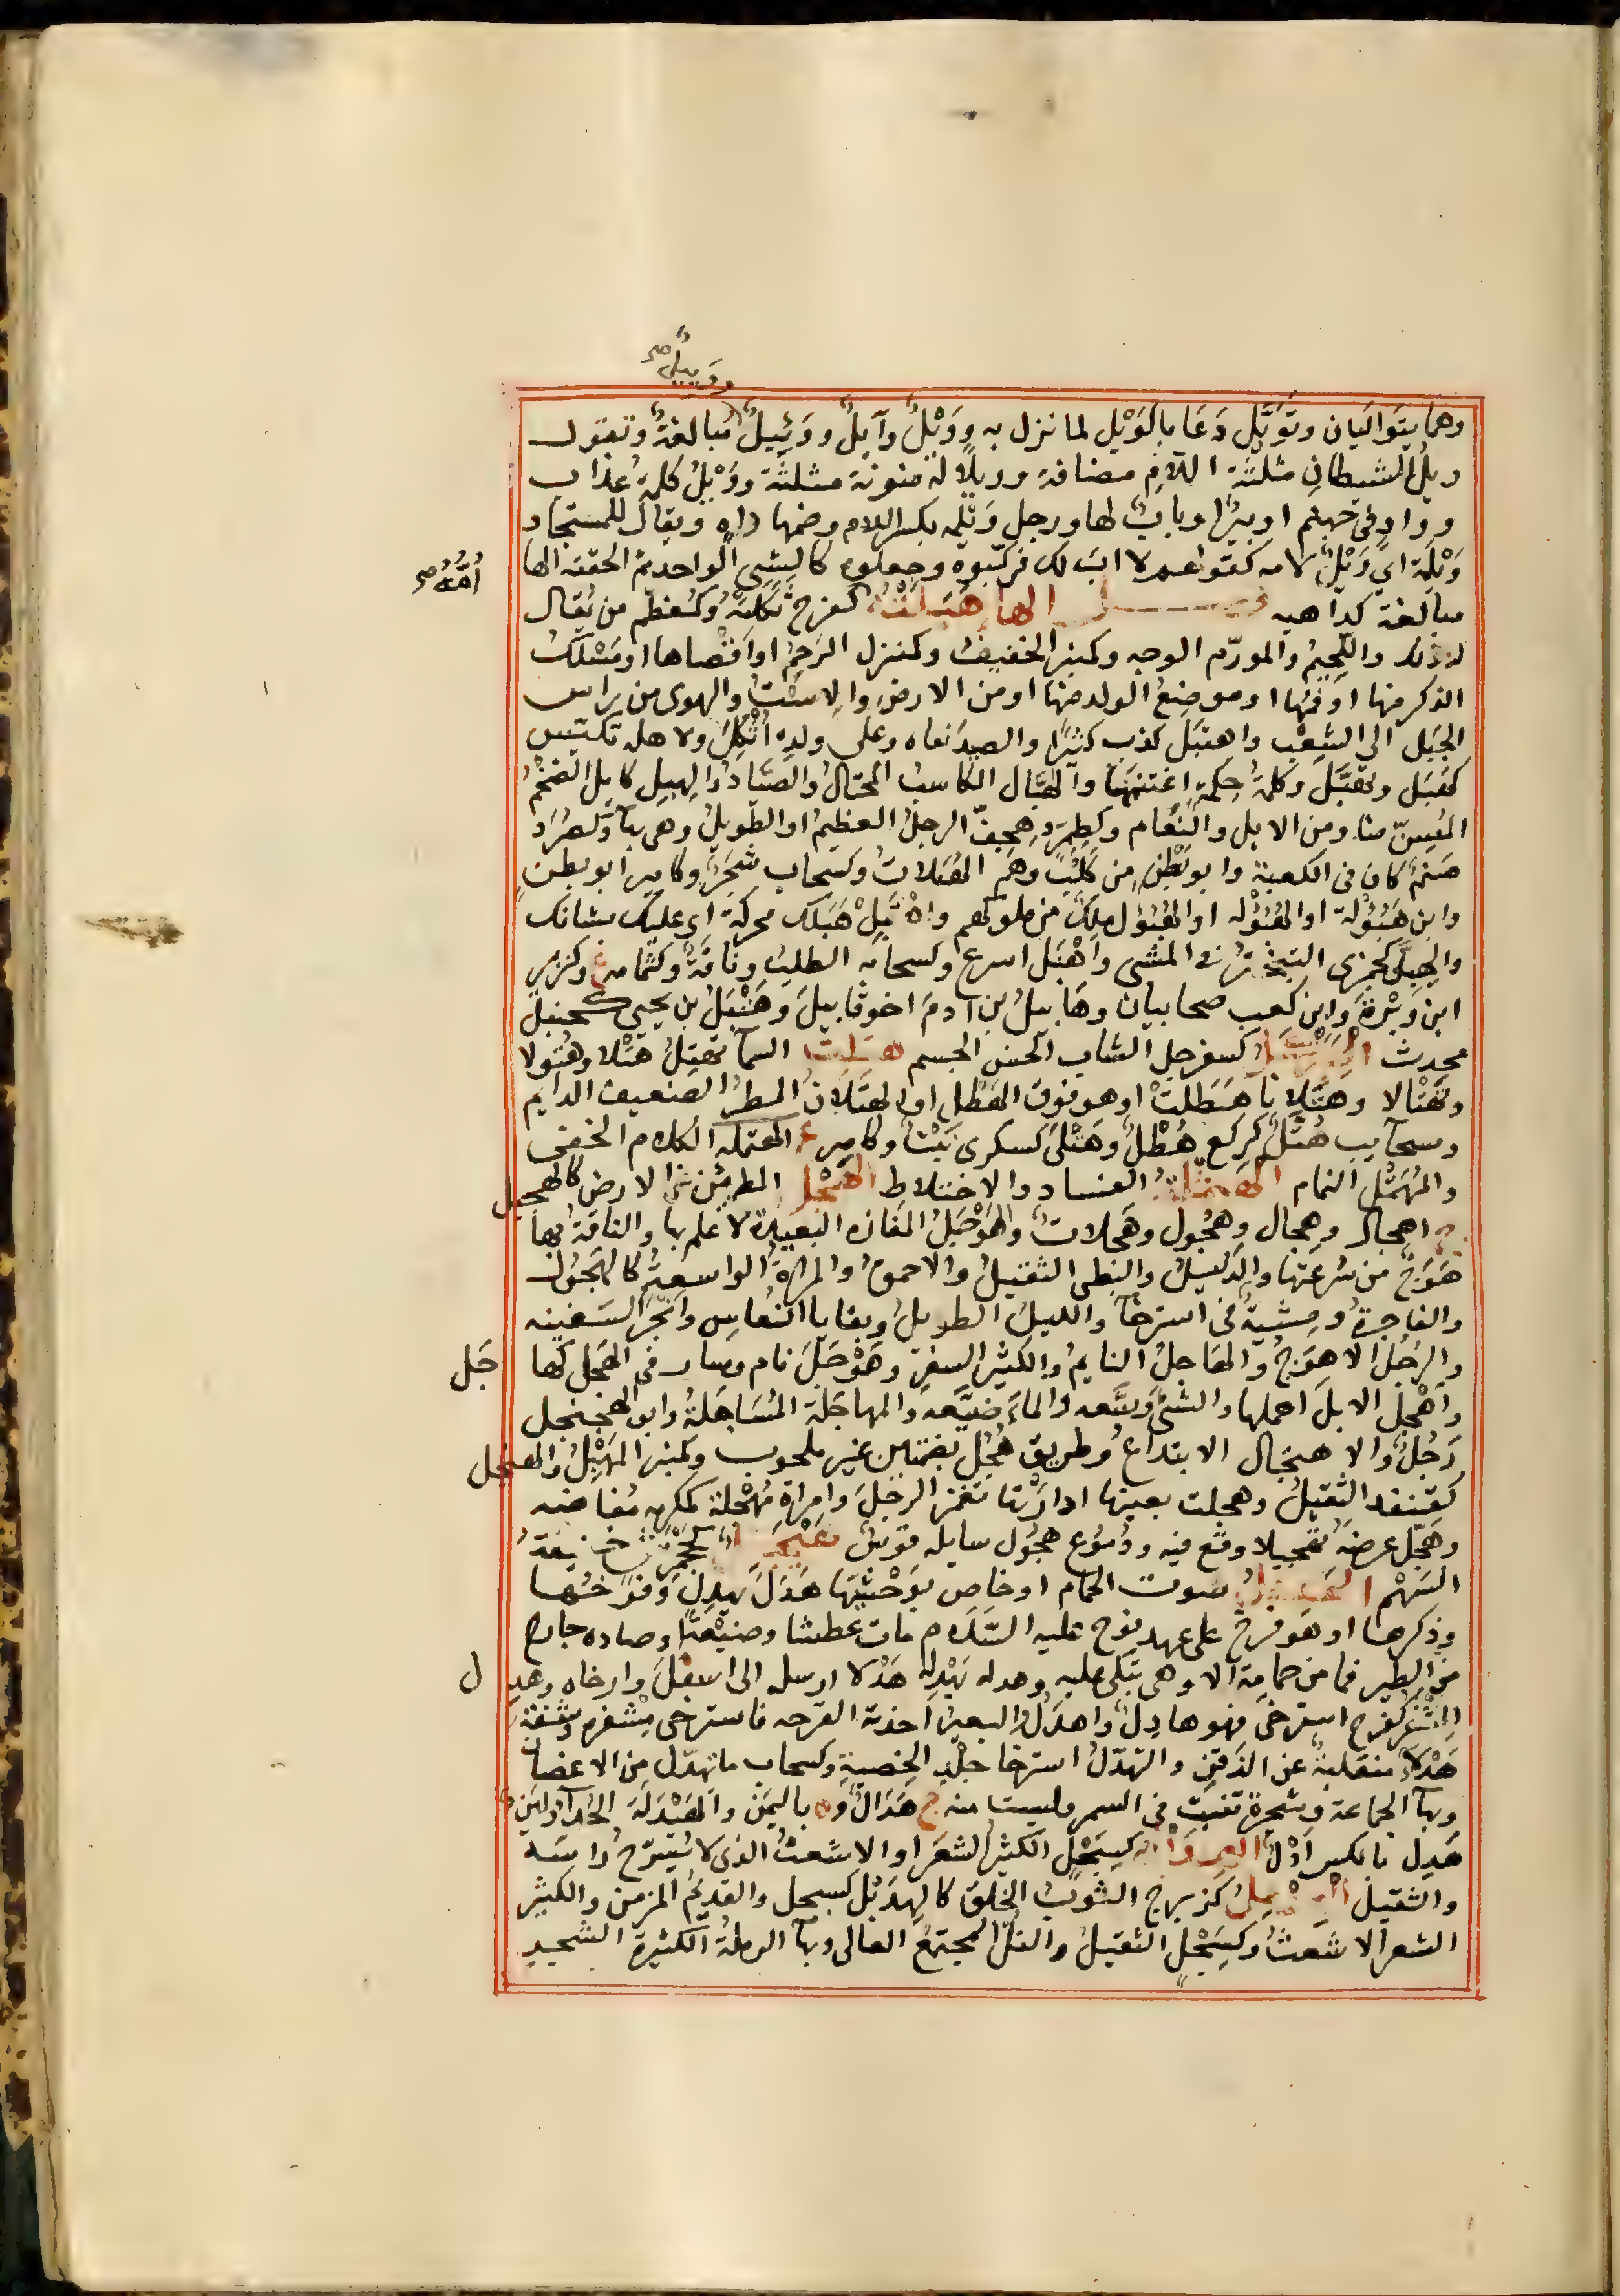 وويل صح
وهما يتواليان وتَوَيَّل دَعَا بالوَيْل لما نزل به ووَيْلٌ وآئلٌ ووَئِيلٌ مبالغةٌ وتقول
ويلُ الشيطانِ مثلثة اللامِ مضافة وويلاً له منونة مثلثة ووَيْلُ كلمةُ عذاب
وواد فى جهنم او بيرٌ او بابٌ لها ورجل وَيْلمه بكسر اللام وضمها داهٍ ويقال للمستجاد
وَيْلُمِّه اي وَيْلٌ لامه كقولهم لا اب لك فركّبوه وجعلوه كالشى الواحد ثم الحقته الها
أمُّهُ صح
مبالغة كداهيه فصل الها هَبِلَتْهُ كفرح ثكلته وكمُعَظَّم من يُقال
له ذلك واللحيمُ والمورّم الوجه وكمنبر الخفيفُ وكمنزل الرَحِمُ او اقصاها او مَسْلك
الذكر منها او فمها او موضع الولد منها او من الارض والاستُ والهوى من راس
الجبَل الى الشِعْب واهتبَل كذب كثيرًا والصيدَ بغاه وعلى ولده اثكل ولاهله تكسّب
كهَبَل وتهبَّل وكلمةَ حِكمةٍ اغتنمها والهَبّال الكاسبُ المحتالُ والصيّادُ والهبِل كابِل الضخمُ
المُسِنّ منا ومن الابل والنعام وكطِمِرّ وهِجفّ الرجلُ العظيمُ او الطويلُ وهى بهآ وكصُرَد
صَنمٌ كان فى الكعبة وابو بَطْنٍ من كَلْبٍ وهم الهُبَلاتُ وكسحاب شجرٌ وكامير ابو بطن
وابن هَبُولة او الهَبُولَه او الهَبُولِ ملكٌ من ملوكهم واهْتَبِلْ هَبَلك محركةً اى عليك بشانك
والهِبِلّى كجمزى التبختر فى المشى واَهْبَل اسرع وكسحابة الطلبُ وناقةٌ وكثمامه ع وكزبير
ابن وَبْرةَ وابن كعب صحابيان وهابيلُ بن آدمَ اخو قابيلَ وهَنْبَلُ بن يحيى كحنبل
محدث الهَبَرْكَلُ كسفرجل الشاب الحسن الجسم هتلت السمآ تهتِل هَتْلا وهُتولا
وتَهْتالا وهَتَلانا هَطَلَتْ او هو فوق الهطل او الهتَلان المطر الضعيف الدايم
وسحايب هُتَّلٌ كركع هُطَّلٌ وهَتْلَى كسكرى نَبْتٌ وكامير ع الهتمله الكلام الخفى
والمُهَتْمِل النمام الهَثْمَلَةُ الفساد والاختلاط الهَجْل المطمئن من الارض كالهجيل
ج اهجال وهِجال وهُجُول وهَجلات والهَوْجَلُ المفازة البَعيدة لا علم بها والناقة بها
هَوَجٌ من سُرعتها والدليلُ والبطى الثقيلُ والاحمقُ والمراةُ الواسعةُ كالهَجُول
والفاجرةُ ومِشيةٌ فى استرخآ والليلُ الطويلُ وبقايا النُعاسِ وانجَر السفينه
والرجُل الاهوَجُ والهاجلُ النايمُ والكثيرُ السفرِ وهَوْجَلَ نام وسار فى الهَجْل كها
جَل
واَهْجَل الابلَ اهملها والشئَ وسَّعه والماءَ ضيّعه والمهاجَلة المُسَاهَلةُ وابو الهجنجل
رَجُلٌ والاهتجال الابتداعُ وطريق هُجُلٌ بضمتين غير ملحوب وكمنبر المَهْبِلُ والهنجل
كقنفد الثقيلُ وهجلت بعينها ادارَتْها تغمز الرجُلَ وامراة مُهْجَلَة كمكرمه مُفاضه
وهَجَّل عِرضَه تهجيلا وقع فيه ودُموع هجُول سايله قوس
السَهْم الهَديلُ صوت الحمام او خاص بوَحْشيّها هَدَلَ يهدِل وفَرخُها
وذكرها او هو فرخٌ على عهد نوح عليه السَّلام مات عطشا وضيْعةً او صاده جارح
من الطير فما من حمامة الا وهى تبكى عليه وهدله يَهْدِله هَدْلا ارسله الى اسفلَ وارخاه وهدِ
ل
المِشْفر كفرح استرخى فهو هادِلٌ واهدَلُ والبعير اخذته القَرحه فاسترخى مِشفره وشَفةٌ
هَدْلاءُ منقلبةٌ عن الذقنِ والتهدّل استرخا جِلْد الخصية وكسحاب ما تهدّل من الاغصان
وبهآ الجماعة وشجرة تنبت فى السمر وليست منه ج هَدالٌ و ة باليمن والهَيْدَلَة الحُدآ ولَبَنٌ
هَدِل بالكسر اِدْلٌ الهِدَمْلة كسِبَحْلٍ الكثير الشعَر او الاشعث الذى لا يُسَرّح راسَه
والثقيل الهِدْمِلُ كزبرج الثوبُ الخَلقُ كالهِدَمْل كسبحل والقديمُ المزمن والكثير
الشعر الاشعثُ وكسِبَحْلٍ الثقيلُ والتلُّ المجتمعُ العالى وبهآ الرملةُ الكثيرة الشجر